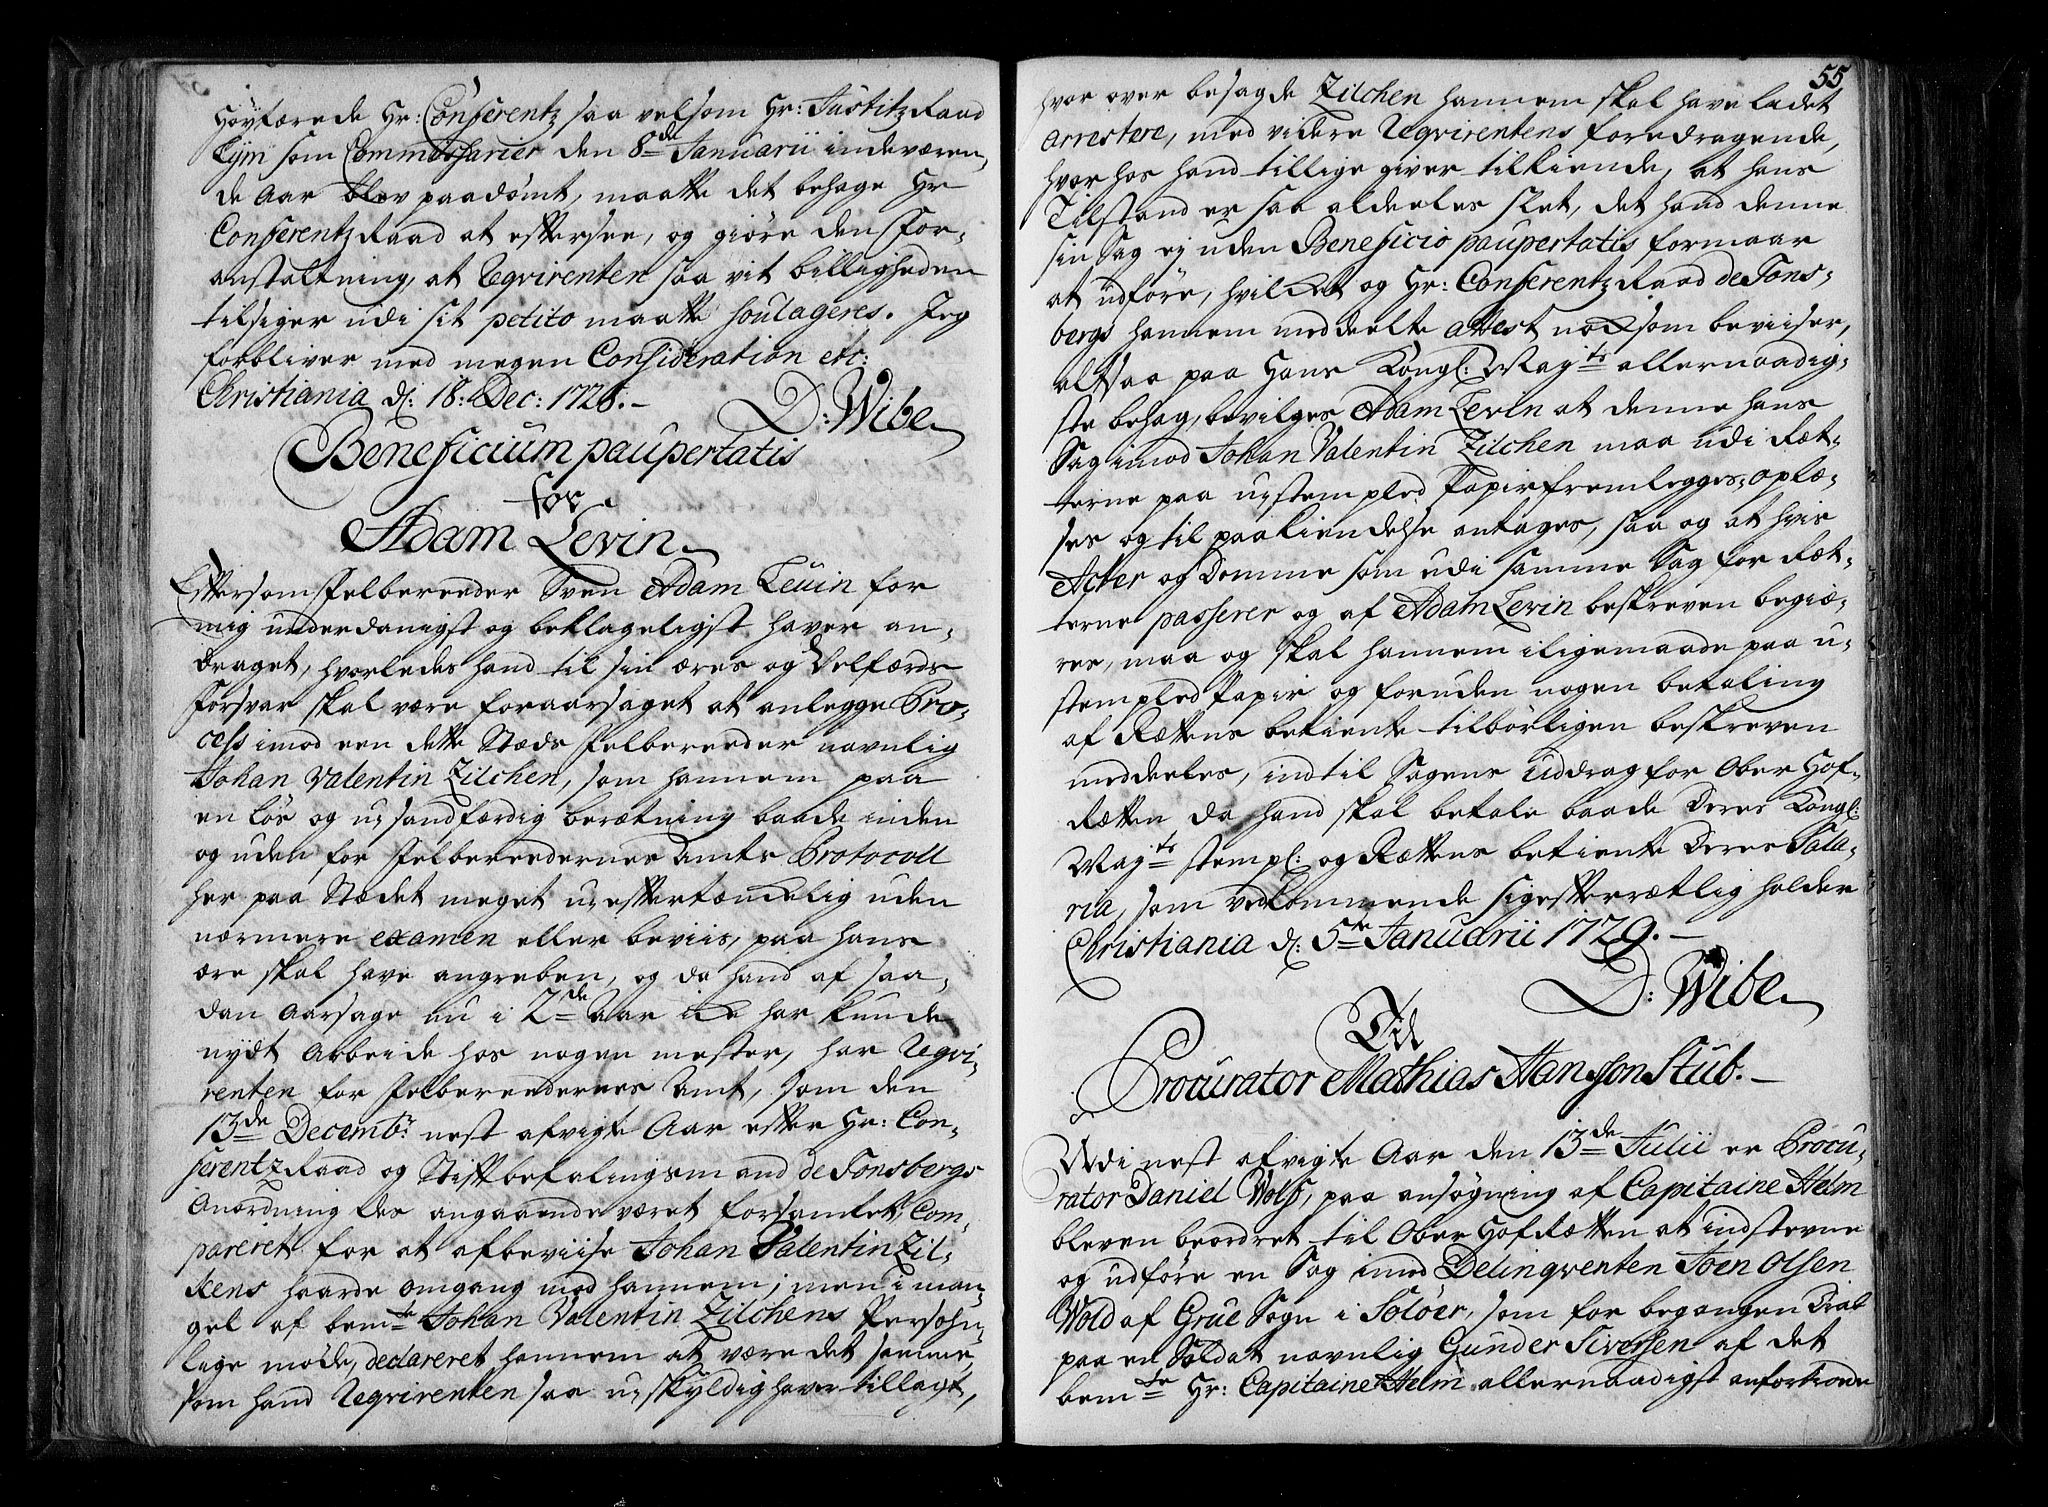 Høyærede Hr: Conferentz saa velsom Hr: Justitz Raad
Lÿm som Commissarier den 8de Januarii indeværen,
de Aar blev paadømt, maatte det behage Hr
Conferentz Raad at eftersee, og giöre den for-
anstaltning, at Reqvirenten saa vit billigheden
tilsiger udi sit petito maatte soulageres. Jeg
forbliver med megen Consideration etc:
Christiania d: 18: Dec: 1728.-
D: Wibe
Beneficium paupertatis
for
Adam Levin
Eftersom Felbereeder Sven Adam Levin for
mig underdanigst og beklageligst haver an-
draget, hvorledes hand til sin æres og Velfærds
Forsvar skal være foraarsaget at anlegge Pro-
cess imod een dette Stæds Felbereeder navnlig
Johan Valentin Zilchen, som hannem paa
en løs og u-sandfærdig berætning baade inden
og uden for Felberedernes Amts Protocoll
her paa Stædet meget u-eftertænckelig uden
nærmere examen eller beviis, paa hans
ære skal have angreben, og da hand af saa-
dan Aarsage nu i 2de Aar icke har kunde
nydt Arbeide hos nogen mester, har Reqvi-
renten for Felberedernes Amt, som den
13de Decembr: nest afvigte Aar efter Hr: Con-
ferentz Raad og Stiftbefalingsmand de Tonsbergs
Anordning des angaaende været forsamlet, Com-
pareret for at afbeviise Johan Valentin Zil-
kens haarde omgang mod hannem; men i man-
gel af bemte Johan Valentin Zilchens Persohn-
lige møde, declareret hannem at være det samme,
som hand Reqvirenten saa u-skyldig haver tillagt,
55
hvor over besagde Zilchen hannem skal have ladet
arrestere, med videre Reqvirentens foredragende,
hvor hos hand tillige giver tilkiende, at hans
Tilstand er saa aldeeles slet, det hand denne
sin Sag ej uden Beneficio paupertatis formaar
at udføre, hvilcket og Hr: Conferentz Raad de Tons-
bergs hannem meddeelte attest nocksom beviiser,
altsaa paa Hans Kongl: Mayts allernaadig-
ste behag, bevilges Adam Levin at denne hans
Sag imod Johan Valentin Zilchen maa udi Ræt-
terne paa u-stempled Papir fremlegges, oplæ-
ses og til paakiendelse antages, saa og at hvis
Acter og Domme som udi samme Sag for Ræt-
terne passerer og af Adam Levin beskreven begiæ-
res, maa og skal hannem iligemaade paa u-
stempled Papir og foruden nogen betaling
af Rættens betiente tilbørligen beskreven
meddeeles, indtil Sagens Uddrag for Ober Hof-
Rætten da hand skal betale baade Deres Kongl:
Mayts stempl: og Rættens betiente Deres Sala-
ria, som vedkommende sig efterrætlig holder
Christiania d: 5te Januarii 1729.-
D: Wibe
Til
Procurator Mathias Hansson Stub.-
Udi nest afvigte Aar den 13de Julii er Procu-
rator Daniel Wolf, paa ansøgning af Capitaine Helm
bleven beordret til Ober HofRætten at indstevne
og udføre en Sag imod Delinqventen Joen Olsen
Wold af Grue Sogn i Solöer, som for begangen Drab
paa en Soldat navnlig Gunder Siversen af det
bemte Hr: Capitaine Helm allernaadigst anfortroede